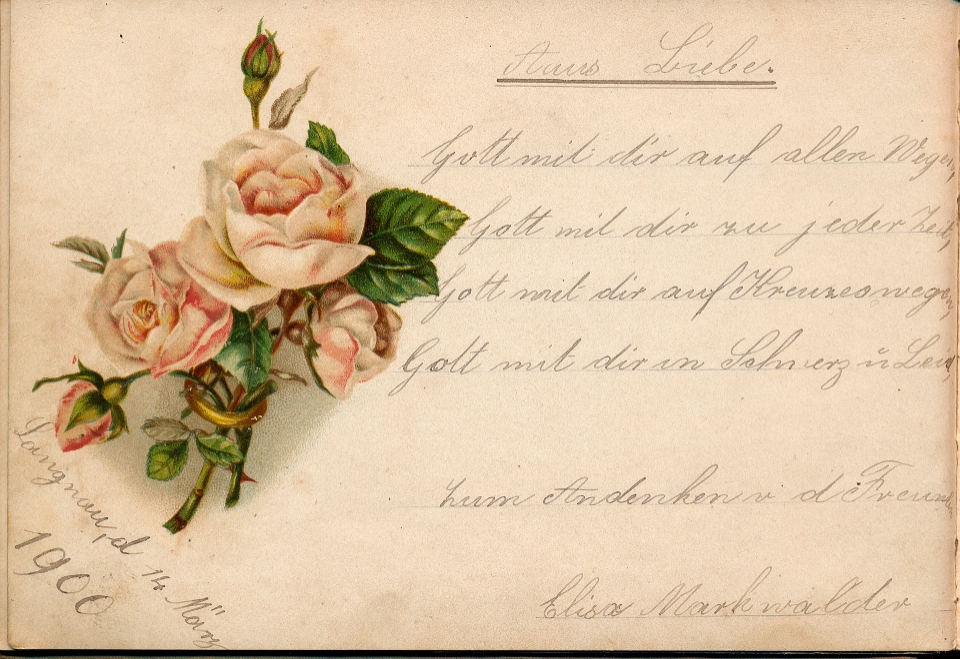 Aus Liebe.
Gott mit dir auf allen Wegen,
Gott mit dir zu jeder Zeit,
Gott mit dir auf Kreuzeswegen,
Gott mit dir in Schmerz ü Leid,
Zum Andenken v d
Elisa Markwalder
Langnau, d 14 März
1900